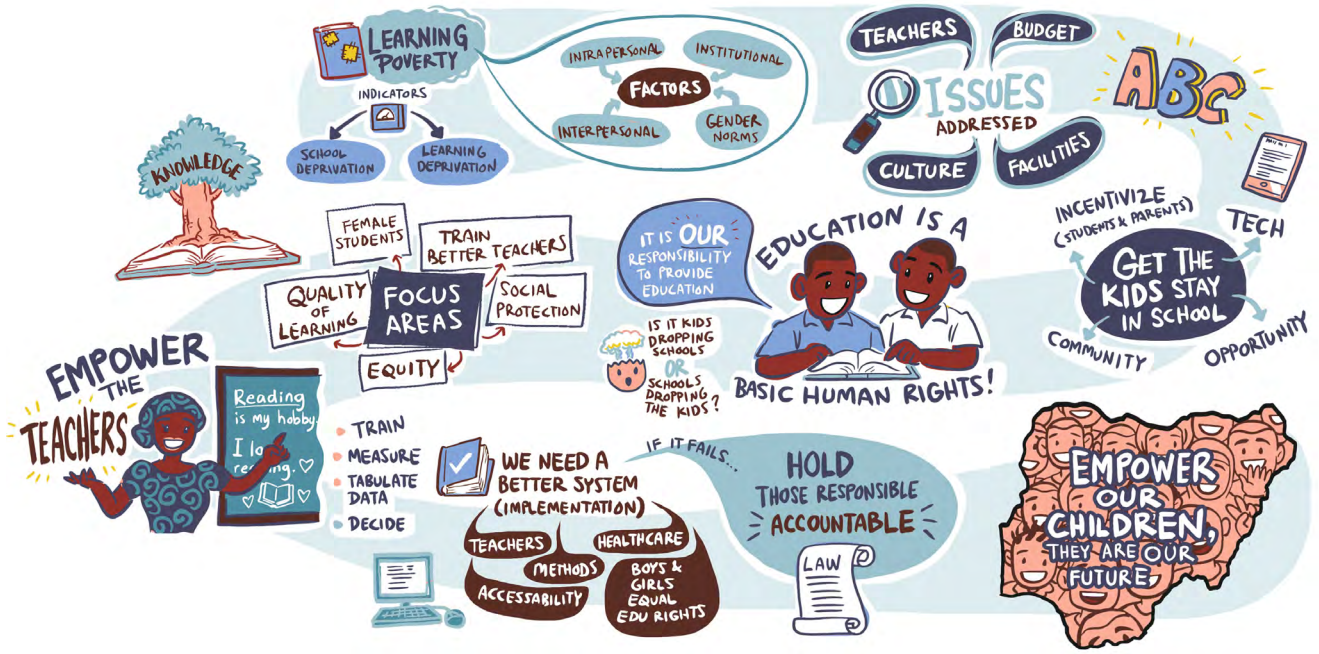 LEARNING
POVERTY
INDICATORS
SCHOOL
DEPRIVATION
LEARNING
DEPRIVATION
INTRAPERSONAL
INSTITUTIONAL
FACTORS
INTERPERSONAL
GENDER
NORMS
TEACHERS
BUDGET
ISSUES
ADDRESSED
CULTURE
FACILITIES
ABC
KNOWLEDGE
FEMALE
STUDENTS
TRAIN
BETTER TEACHERS
QUALITY
OF
LEARNING
FOCUS
AREAS
SOCIAL
PROTECTION
EQUITY
IT IS OUR
RESPONSIBILITY
TO PROVIDE
EDUCATION
EDUCATION IS A
BASIC HUMAN RIGHTS!
IS IT KIDS
DROPPING
SCHOOLS
OR
SCHOOLS
DROPPING
THE KIDS?
INCENTIVIZE
(STUDENTS & PARENTS)
TECH
GET THE
KIDS STAY
IN SCHOOL
COMMUNITY
OPPORTUNITY
EMPOWER
THE
TEACHERS
Reading
is my hobby.
I lo
reading.
TRAIN
MEASURE
TABULATE
DATA
DECIDE
WE NEED A
BETTER SYSTEM
(IMPLEMENTATION)
TEACHERS
HEALTHCARE
METHODS
ACCESSABILITY
BOYS &
GIRLS
EQUAL
EDU RIGHTS
IF IT FAILS...
HOLD
THOSE RESPONSIBLE
ACCOUNTABLE
LAW
EMPOWER
OUR
CHILDREN,
THEY ARE OUR
FUTURE,